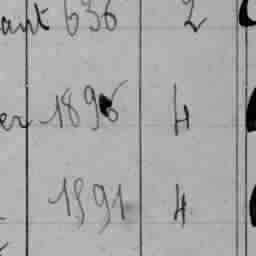 ant 636 2
er 1896 4
1591 4